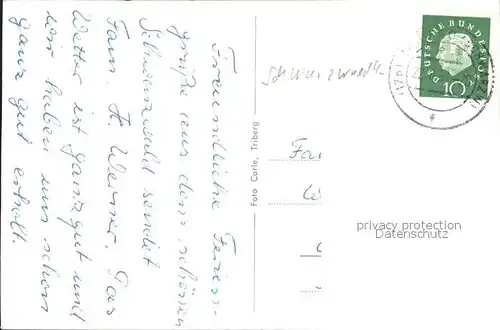 Freundliche Ferien-
grüße aus dem schönen
Schwarzwald sendet
Fam. K. Werner. Das
Wetter ist ganz gut und
wir haben uns schon
ganz gut erholt.
Foto Carle, Triberg
DEUTSCHE BUNDESPOST
10
privacy protection
Datenschutz